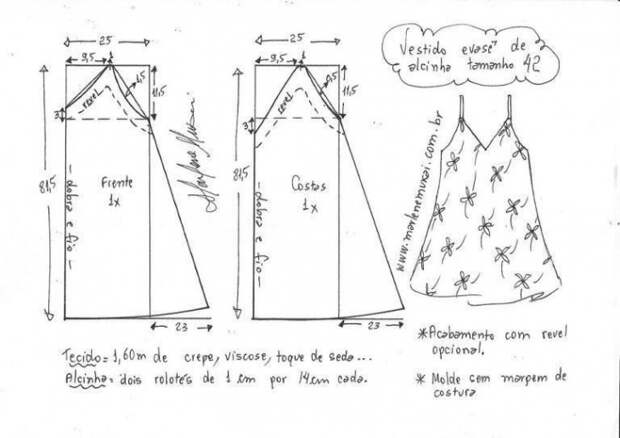 25
9,5
1,5
11,5
3
revel
81,5
dobra e fio
Frente
1x
23
25
9,5
11,5
3
revel
81,5
dobra e fio
Costas
1x
23
Vestido evasê de
alcinha tamanho 42
www.marlenemukai.com.br
*Acabamento com revel
opcional.
* Molde sem margem de
costura
Tecido= 1,60m de crepe, viscose, toque de seda...
Alcinha= dois rolotés de 1 cm por 14 cm cada.